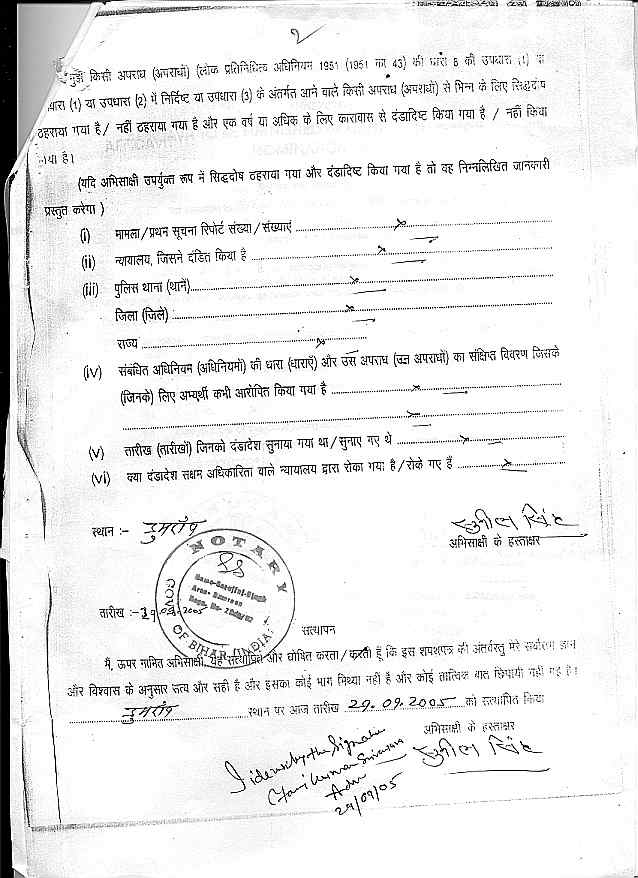 २
मुझे किसी अपराध (अपराधों) (लोक प्रतिनिधित्व अधिनियम 1951 (1951 का 43) की धारा 8 की उपधारा (1) या
धारा (1) या उपधारा (2) में निर्दिष्ट या उपधारा (3) के अंतर्गत आने वाले किसी अपराध (अपराधों) से भिन्न के लिए सिद्धदोष
ठहराया गया है / नहीं ठहराया गया है और एक वर्ष या अधिक के लिए कारावास से दंडादिष्ट किया गया है / नहीं किया
गया है।
(यदि अभिसाक्षी उपर्युक्त रूप में सिद्धदोष ठहराया गया और दंडादिष्ट किया गया है तो वह निम्नलिखित जानकारी
प्रस्तुत करेगा )
(i) मामला/प्रथम सूचना रिपोर्ट संख्या/संख्याएं ............ x
(ii) न्यायालय, जिसने दंडित किया है ............ x
(iii) पुलिस थाना (थानें)............ x
जिला (जिले) :............ x
राज्य ............ x
(iv) संबंधित अधिनियम (अधिनियमों) की धारा (धाराएँ) और उस अपराध (उन अपराधों) का संक्षिप्त विवरण जिसके
(जिनके) लिए अभ्यर्थी कभी आरोपित किया गया है ............ x
............ x
(v) तारीख (तारीखों) जिनको दंडादेश सुनाया गया था/सुनाए गए थे ............ x
(vi) क्या दंडादेश सक्षम अधिकारिता वाले न्यायालय द्वारा रोका गया है/रोके गए हैं ............ x
स्थान :- डुमराँव
सुनील सिंह
अभिसाक्षी के हस्ताक्षर
NOTARY
GOVT. OF BIHAR (INDIA)
तारीख :- 29.09.2005
सत्यापन
मैं, ऊपर नामित अभिसाक्षी, यह सत्यापित और घोषित करता/करती हूँ कि इस शपथपत्र की अंतर्वस्तु मेरे सर्वोत्तम ज्ञान
और विश्वास के अनुसार सत्य और सही है और इसका कोई भाग मिथ्या नहीं है और कोई तात्विक बात छिपायी नहीं गई है।
डुमराँव स्थान पर आज तारीख 29.09.2005 को सत्यापित किया
अभिसाक्षी के हस्ताक्षर
सुनील सिंह
I identify the Signature
Adv
29/09/05